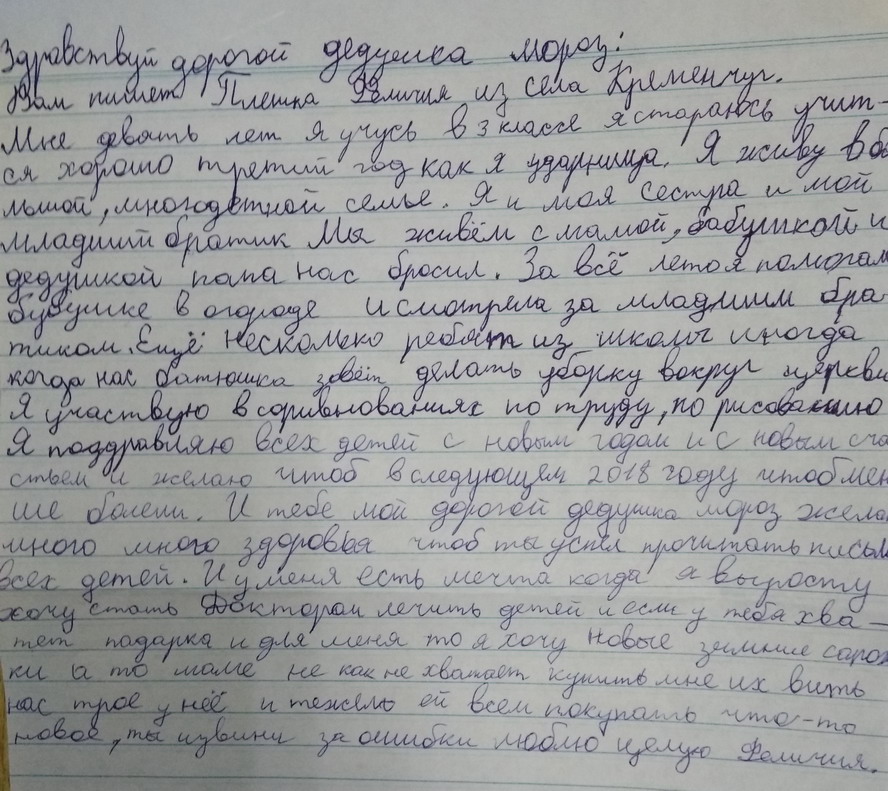 Здравствуй дорогой дедушка мороз!
Вам пишет Плешка Феличия из села Кременчуг.
Мне девять лет я учусь в 3 классе я стараюсь учит-
ся хорошо третий год как я ударница. Я живу в бо
льшой, многодетной семье. Я и моя сестра и мой
младший братик Мы живём с мамой, бабушкой и
дедушкой папа нас бросил. За всё лето я помогала
бубушке в огороде и смотрела за младшим бра-
тиком. Ещё несколько ребят из школы иногда
когда нас батюшка зовёт делать уборку вокруг церкви
Я участвую в соривнованиях по труду, по рисованию
Я поздравляю всех детей с новым годом и с новым сча
стьем и желаю чтоб в следующем 2018 году чтоб мен
ше болели. И тебе мой дорогой дедушка мороз жела
много много здоровья чтоб ты успел прочитать письм
всех детей. И у меня есть мечта когда я выросту
хочу стать Доктором лечить детей и если у тебя хва-
тет падарка и для меня то я хочу новые зимние сапож
ки а то маме не как не хватает купить мне их вить
нас трое у неё и тежело ей всем покупать что-то
новое, ты извини за ошибки люблю целую Феличия.